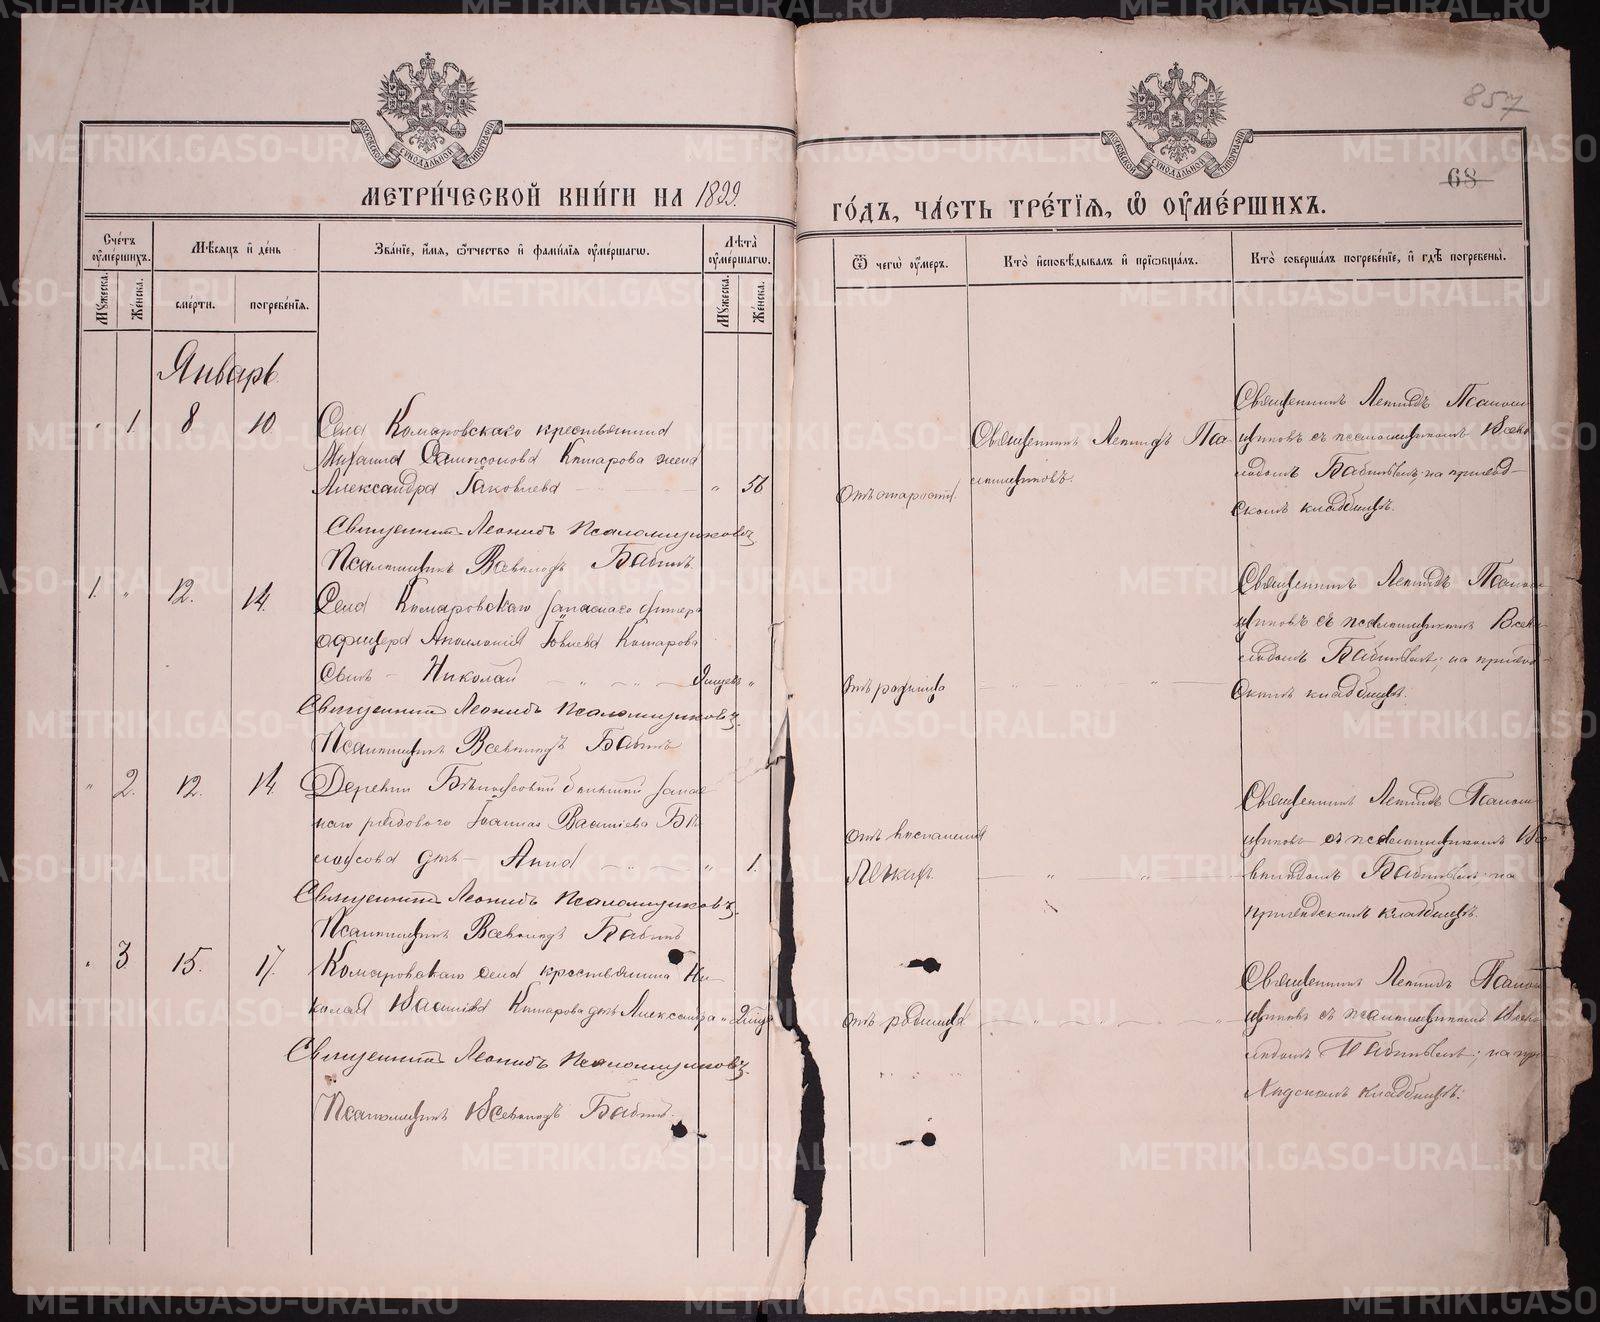 857
68
МОСКОВСКОЙ СѴНОДАЛЬНОЙ ТИПОГРАФІИ
МОСКОВСКОЙ СѴНОДАЛЬНОЙ ТИПОГРАФІИ
МЕТРИ́ЧЕСКОЙ КНИ́ГИ НА 1899
ГО́ДЪ, ЧА́СТЬ ТРЕ́ТІѦ, Ѡ ОУМЕ́РШИХЪ.
Счетъ оумершихъ.
Мѣсяцъ и день
Званіе, имя, отчество и фамилія оумершагѡ.
Лѣта оумершагѡ.
Мужеска.
Женска.
смерти.
погребенія.
Мужеска.
Женска.
Ѿ чегѡ оумеръ.
Кто исповѣдывалъ и пріобщалъ.
Кто совершалъ погребеніе, и гдѣ погребены.
Январь
" 1. 8 10
Села Комаровскаго крестьянина
Михаила Сампсонова Комарова жена
Александра Іаковлева " 56
Отъ старости.
Священникъ Леонидъ Псаломщиковъ.
Священникъ Леонидъ Псаломщиковъ съ псаломщикомъ Всеволодомъ Бабинымъ; на приходскомъ кладбищѣ.
Священникъ Леонидъ Псаломщиковъ
Псаломщикъ Всеволодъ Бабинъ
1. " 12. 14.
Села Комаровскаго запаснаго унтеръ
офицера Аполлонія Іовлева Комарова
сынъ Николай "
Отъ родимца
Священникъ Леонидъ Псаломщиковъ съ псаломщикомъ Всеволодомъ Бабинымъ; на приходскомъ кладбищѣ.
Священникъ Леонидъ Псаломщиковъ.
Псаломщикъ Всеволодъ Бабинъ
" 2. 12. 14.
Деревни запаснаго рядоваго Іоанна Василіева
дочь Анна " 1.
Отъ воспаленія
легкихъ.
Священникъ Леонидъ Псаломщиковъ съ псаломщикомъ Всеволодомъ Бабинымъ на
приходскомъ кладбищѣ.
Священникъ Леонидъ Псаломщиковъ.
Псаломщикъ Всеволодъ Бабинъ
" 3 15. 17.
Комаровскаго села крестьянина Николая Василіева Комарова дочь Александра "
отъ родимца
Священникъ Леонидъ Псаломщиковъ съ псаломщикомъ Всеволодомъ Бабинымъ; на приходскомъ кладбищѣ.
Священникъ Леонидъ Псаломщиковъ.
Псаломщикъ Всеволодъ Бабинъ.
METRIKI.GASO-URAL.RU